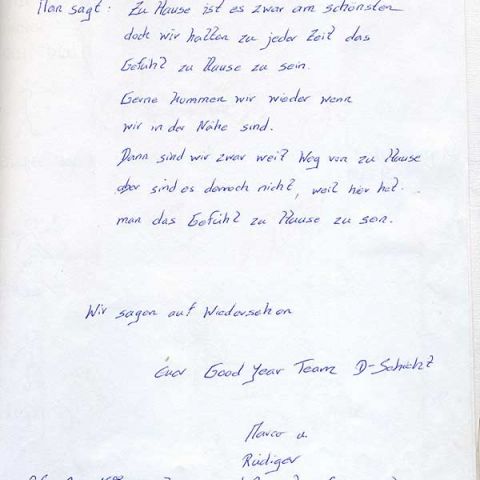 Man sagt: Zu Hause ist es zwar am schönsten
doch wir hatten zu jeder Zeit das
Gefühl zu Hause zu sein.
Gerne kommen wir wieder wenn
wir in der Nähe sind.
Dann sind wir zwar weit weg von zu Hause
aber sind es dennoch nicht, weil hier hat
man das Gefühl zu Hause zu sein.
Wir sagen auf Wiedersehen
Euer Good Year Team D-Schicht
Marco u.
Rüdiger